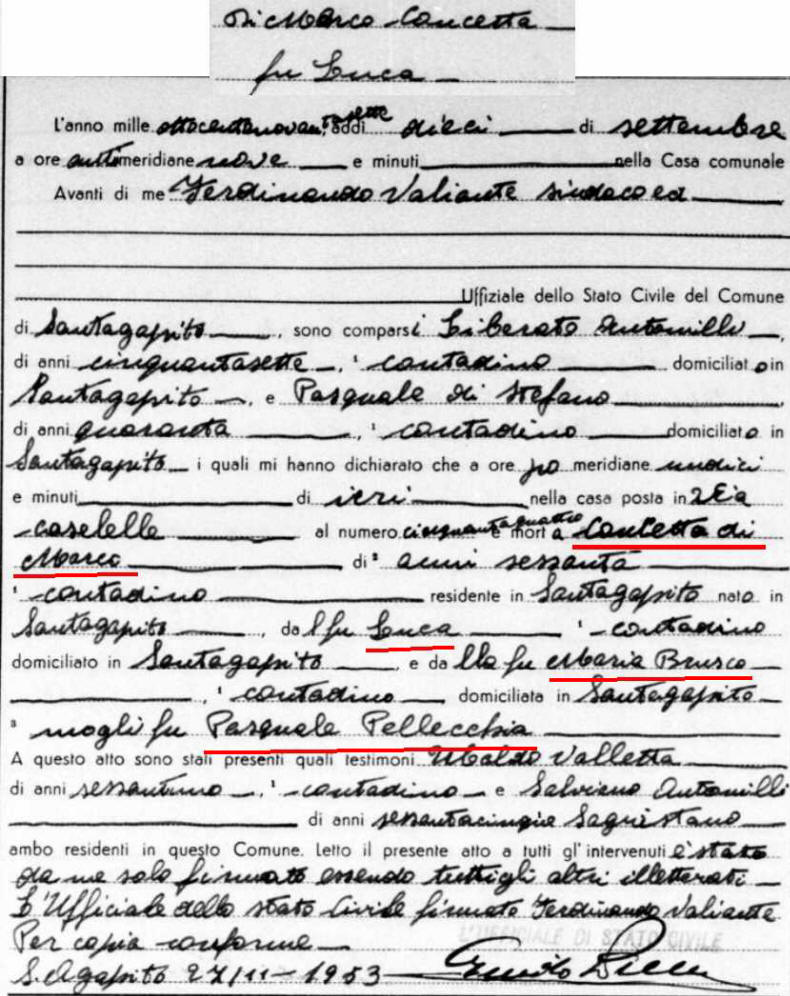 Di Marco Concetta
fu Luca
L'anno mille ottocentonovantasette addì dieci di settembre
a ore antimeridiane nove e minuti nella Casa comunale
Avanti di me Ferdinando Valiante sindaco ed
Uffiziale dello Stato Civile del Comune
di Santagapito, sono comparsi Liberato Antonilli,
di anni cinquantasette, contadino domiciliato in
Santagapito, e Pasquale di Stefano
di anni quaranta, contadino domiciliato in
Santagapito i quali mi hanno dichiarato che a ore po meridiane undici
e minuti di ieri nella casa posta in Via
caselle al numero cinquantaquattro è morta Concetta di
Marco di anni sessanta
contadino residente in Santagapito nato in
Santagapito, dal fu Luca contadino
domiciliato in Santagapito, e da lla fu Maria Brusco
, contadino domiciliata in Santagapito
mogli fu Pasquale Pellecchia
A questo atto sono stati presenti quali testimoni Ubaldo Valletta
di anni sessantuno, contadino e Salvieno Antonilli
di anni sessantacinque
ambo residenti in questo Comune. Letto il presente atto a tutti gl'intervenuti è stato
da me solo firmato essendo tutti gli altri illetterati
L'Ufficiale dello stato Civile firmato Ferdinando Valiante
Per copia conforme
L'UFFICIALE DI STATO CIVILE
S. Agapito 27/11-1953